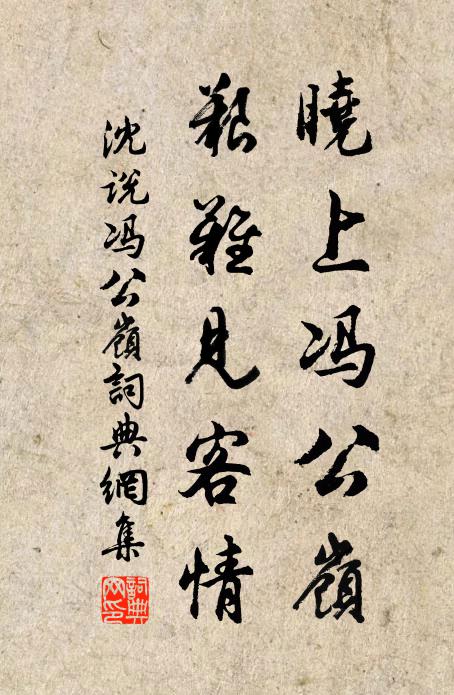 曉上冯公嶺
艱難見客情
沈说冯公嶺詞典網集
詞典網印